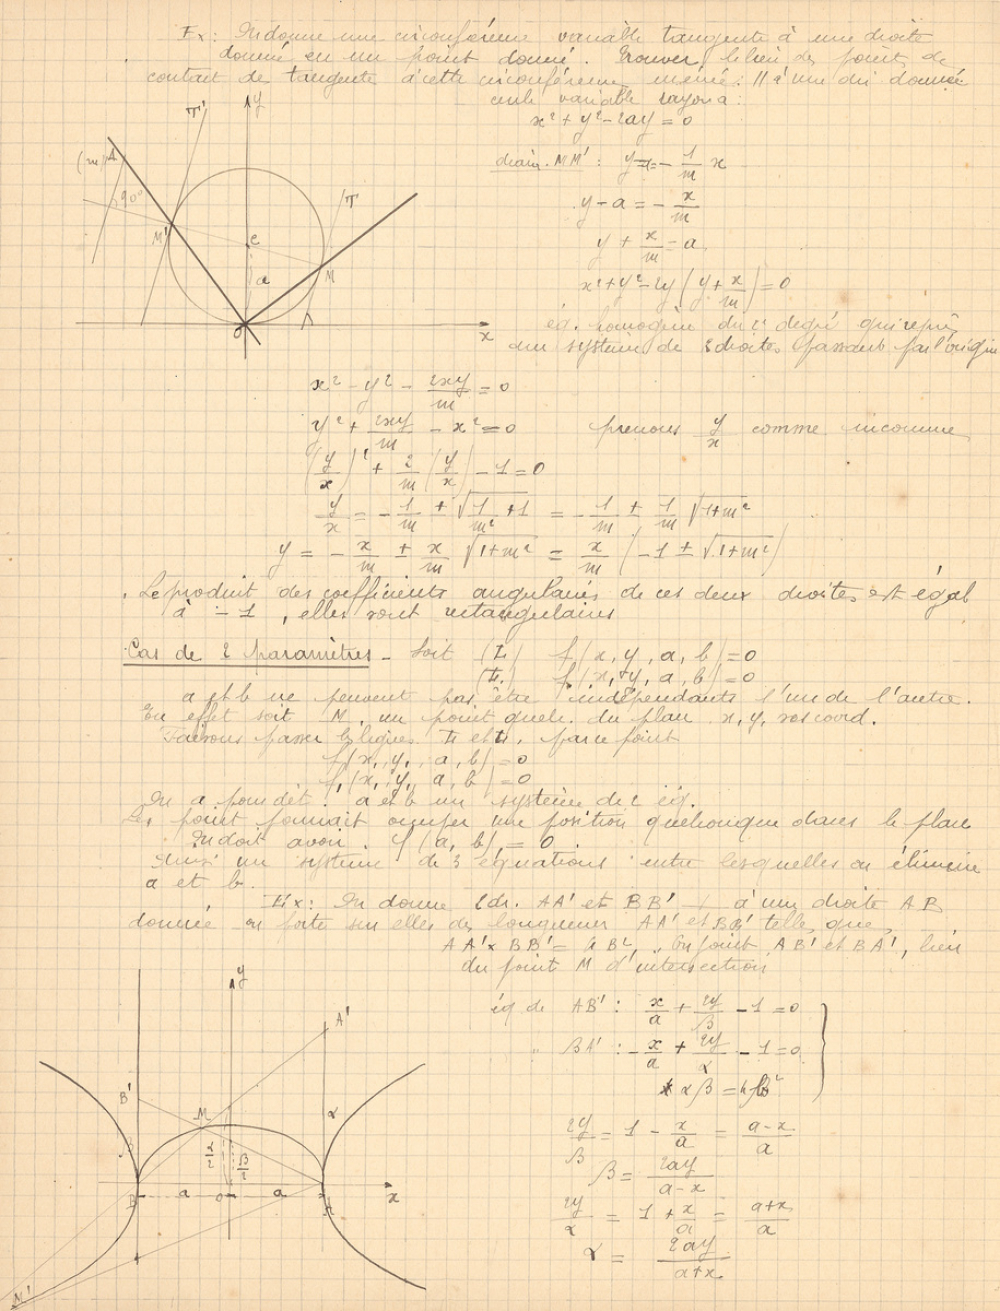 Ex: On donne une circonférence variable tangente à une droite
donnée en un point donné. Trouver le lieu des points de
contact de tangente à cette circonférence menée // à une dir donnée
cercle variable rayon a:
x² + y² - 2ay = 0
diam. MM' : y - a = - 1/m x
y - a = - x/m
y + x/m = a
x² + y² - 2y (y + x/m) = 0
éq. homogène du 2e degré qui représ
un système de 2 droites passant par l'origine
x² - y² - 2xy/m = 0
y² + 2xy/m - x² = 0 prenons y/x comme inconnue
(y/x)² + 2/m (y/x) - 1 = 0
y/x = - 1/m ± √(1/m² + 1) = - 1/m ± 1/m √(1+m²)
y = - x/m ± x/m √(1+m²) = x/m (-1 ± √(1+m²))
Le produit des coefficients angulaires de ces deux droites est égal
à -1, elles sont rectangulaires
Cas de 2 paramètres - Soit (Γ) f(x, y, a, b) = 0
(Γ₁) f₁(x, y, a, b) = 0
a et b ne peuvent pas être indépendants l'un de l'autre.
En effet soit M, un point quelc. du plan x, y, ses coord.
Faisons passer les lignes Γ et Γ₁ par ce point
f(x₁, y₁, a, b) = 0
f₁(x₁, y₁, a, b) = 0
On a pour dét. a et b un système de 2 éq.
Le point pouvait occuper une position quelconque dans le plan
On doit avoir φ(a, b) = 0
un système de 3 équations entre lesquelles on élimine
a et b.
Ex: On donne 2 dr. AA' et BB' ⊥ à une droite AB
donnée on porte sur elles des longueurs AA' et BB' telles que
AA' × BB' = 4B², On joint AB' et BA', lieu
du point M d'intersection
éq de AB' : x/a + 2y/β - 1 = 0
" BA' : - x/a + 2y/α - 1 = 0
αβ = 4b²
2y/β = 1 - x/a = a-x/a
β = 2ay/a-x
2y/α = 1 + x/a = a+x/a
α = 2ay/a+x
y
T'
(m)
A
90°
M'
C
T
M
a
O
x
y
A'
B'
M
α
β
α/2
β/2
B
a
O
a
A
x
M'